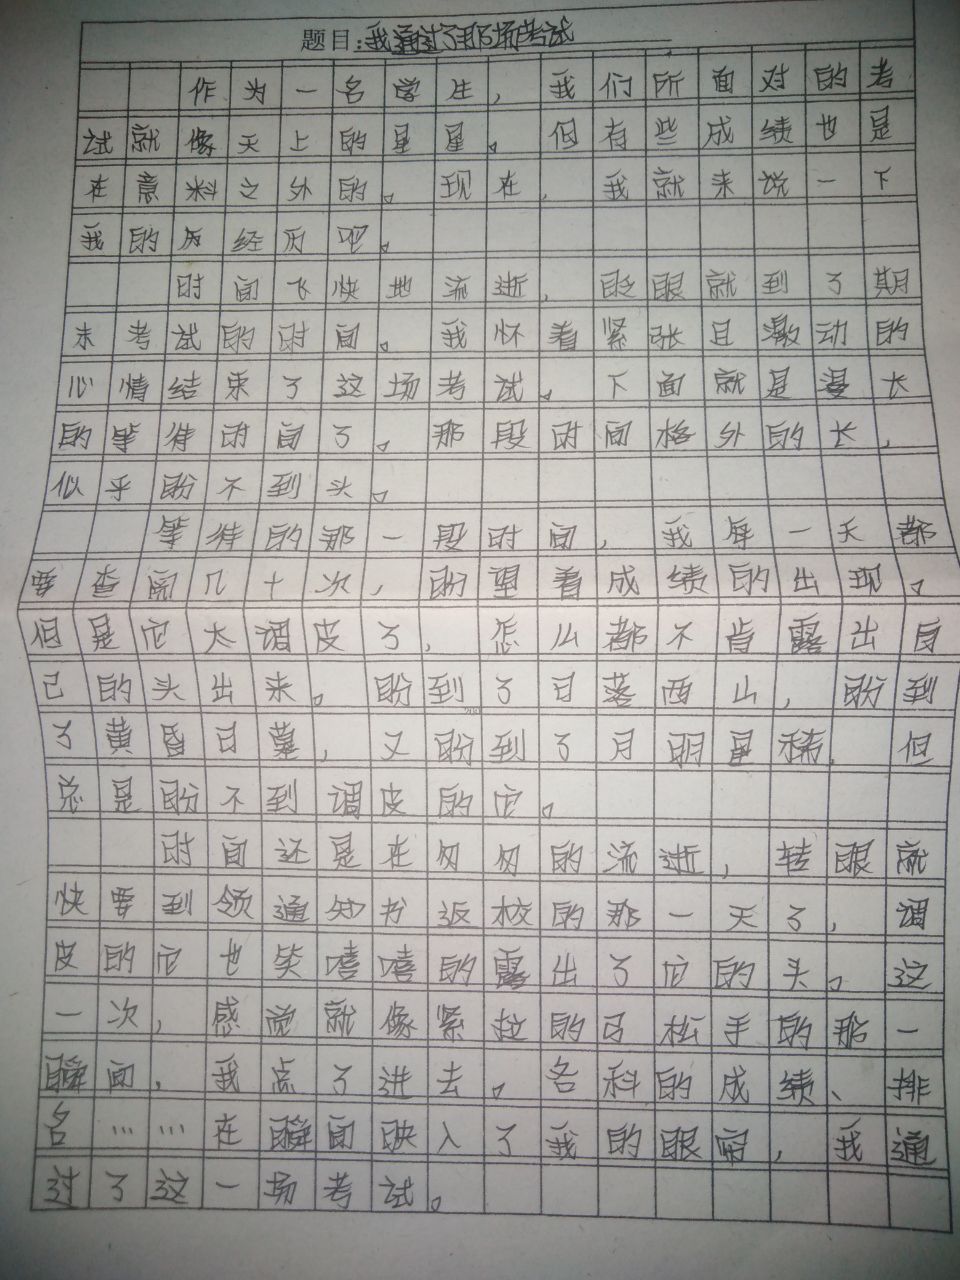 题目:我通过了那场考试
作为一名学生,我们所面对的考
试就像天上的星星。但有些成绩也是
在意料之外的。现在,我就来说一下
我的历经历吧。
时间飞快地流逝,眨眼就到了期
末考试的时间。我怀着紧张且激动的
心情结束了这场考试。下面就是漫长
的等待时间了。那段时间格外的长,
似乎盼不到头。
等待的那一段时间,我每一天都
要查阅几十次,盼望着成绩的出现。
但是它太调皮了,怎么都不肯露出自
己的头出来。盼到了日落西山,盼到
了黄昏日暮,又盼到了月明星稀,但
总是盼不到调皮的它。
时间还是在匆匆的流逝,转眼就
快要到领通知书返校的那一天了,调
皮的它也笑嘻嘻的露出了它的头。这
一次,感觉就像紧拉的弓松手的那一
瞬间,我点了进去。各科的成绩、排
名……在瞬间映入了我的眼帘,我通
过了这一场考试。